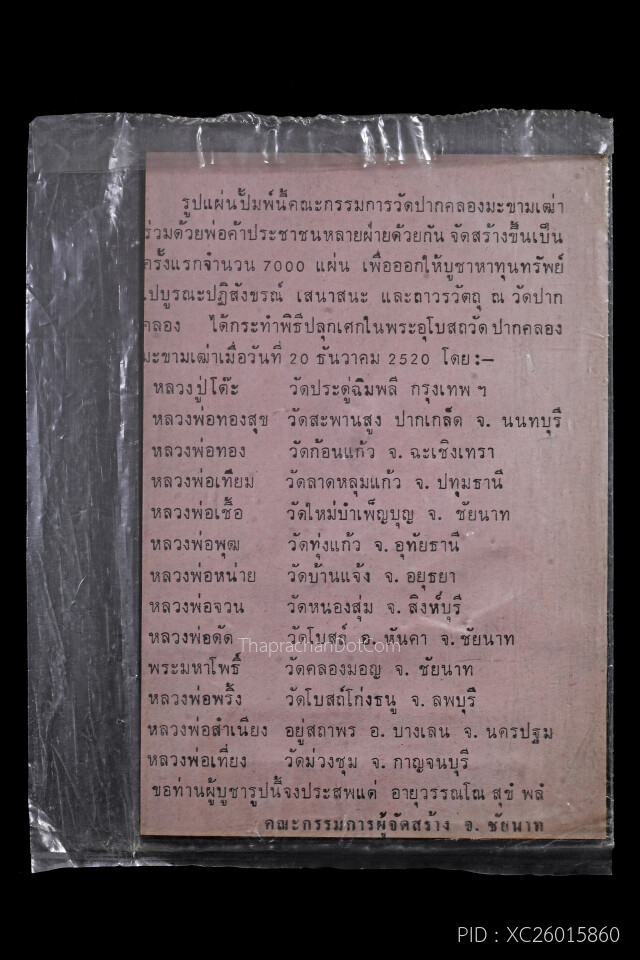 รูปแผ่นปั๊มพ์นี้คณะกรรมการวัดปากคลองมะขามเฒ่า
ร่วมด้วยพ่อค้าประชาชนหลายฝ่ายด้วยกัน จัดสร้างขึ้นเป็น
ครั้งแรกจำนวน 7000 แผ่น เพื่อออกให้บูชาหาทุนทรัพย์
ไปบูรณะปฏิสังขรณ์ เสนาสนะ และถาวรวัตถุ ณ วัดปาก
คลอง ได้กระทำพิธีปลุกเศกในพระอุโบสถวัดปากคลอง
มะขามเฒ่าเมื่อวันที่ 20 ธันวาคม 2520 โดย:—
หลวงปู่โต๊ะ วัดประดู่ฉิมพลี กรุงเทพ ฯ
หลวงพ่อทองสุข วัดสะพานสูง ปากเกล็ด จ. นนทบุรี
หลวงพ่อทอง วัดก้อนแก้ว จ. ฉะเชิงเทรา
หลวงพ่อเทียม วัดลาดหลุมแก้ว จ. ปทุมธานี
หลวงพ่อเชื้อ วัดใหม่บำเพ็ญบุญ จ. ชัยนาท
หลวงพ่อพุฒ วัดทุ่งแก้ว จ. อุทัยธานี
หลวงพ่อหน่าย วัดบ้านแจ้ง จ. อยุธยา
หลวงพ่อจวน วัดหนองสุ่ม จ. สิงห์บุรี
หลวงพ่อดัด วัดโบสถ์ อ. หันคา จ. ชัยนาท
ThaprachanDotCom
พระมหาโพธิ์ วัดคลองมอญ จ. ชัยนาท
หลวงพ่อพริ้ง วัดโบสถ์โก่งธนู จ. ลพบุรี
หลวงพ่อสำเนียง อยู่สถาพร อ. บางเลน จ. นครปฐม
หลวงพ่อเที่ยง วัดม่วงชุม จ. กาญจนบุรี
ขอท่านผู้บูชารูปนี้จงประสพแด่ อายุวรรณโณ สุขํ พลํ
คณะกรรมการผู้จัดสร้าง จ. ชัยนาท
PID : XC26015860